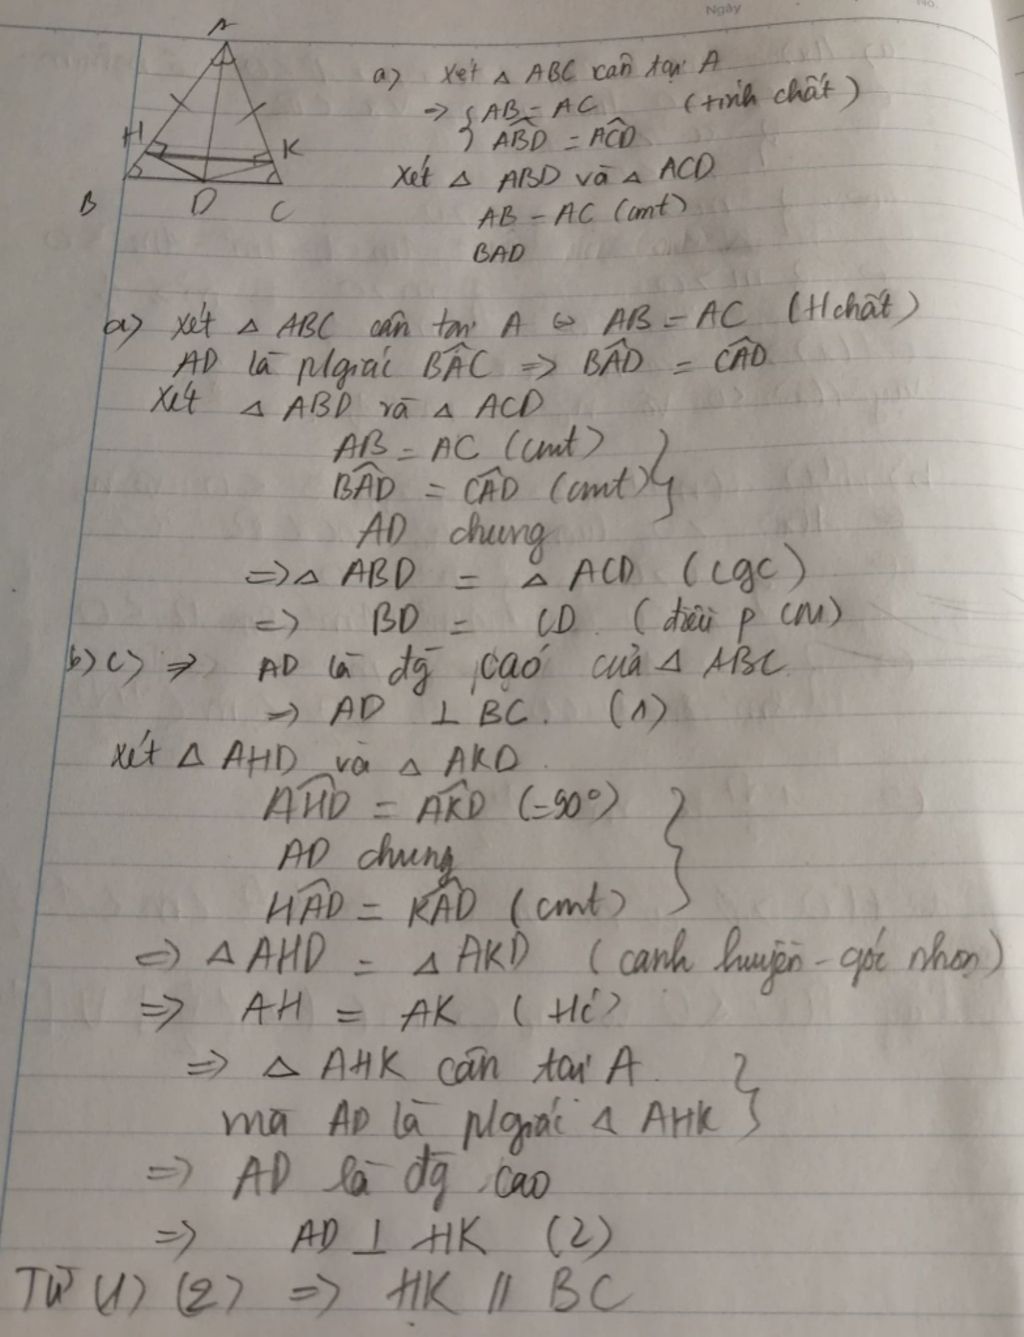 Ngày
No.
A
H
K
B
D
C
a) Xét △ ABC cân tại A
=> { AB = AC (tính chất)
ABD = ACD
Xét △ ABD và △ ACD
AB = AC (cmt)
BAD
a) Xét △ ABC cân tại A => AB = AC (t/chất)
AD là p/giác BAC => BAD = CAD
Xét △ ABD và △ ACD
AB = AC (cmt)
BAD = CAD (cmt)
AD chung
=> △ ABD = △ ACD (cgc)
=> BD = CD. (điều p CM)
b) c) => AD là đg cao của △ ABC
=> AD ⊥ BC. (1)
Xét △ AHD và △ AKD.
AHD = AKD (=90°)
AD chung
HAD = KAD (cmt)
=> △ AHD = △ AKD (cạnh huyện - góc nhọn)
=> AH = AK
=> △ AHK cân tại A.
mà AD là p/giác △ AHK
=> AD là đg cao
=> AD ⊥ HK (2)
Từ (1) (2) => HK // BC